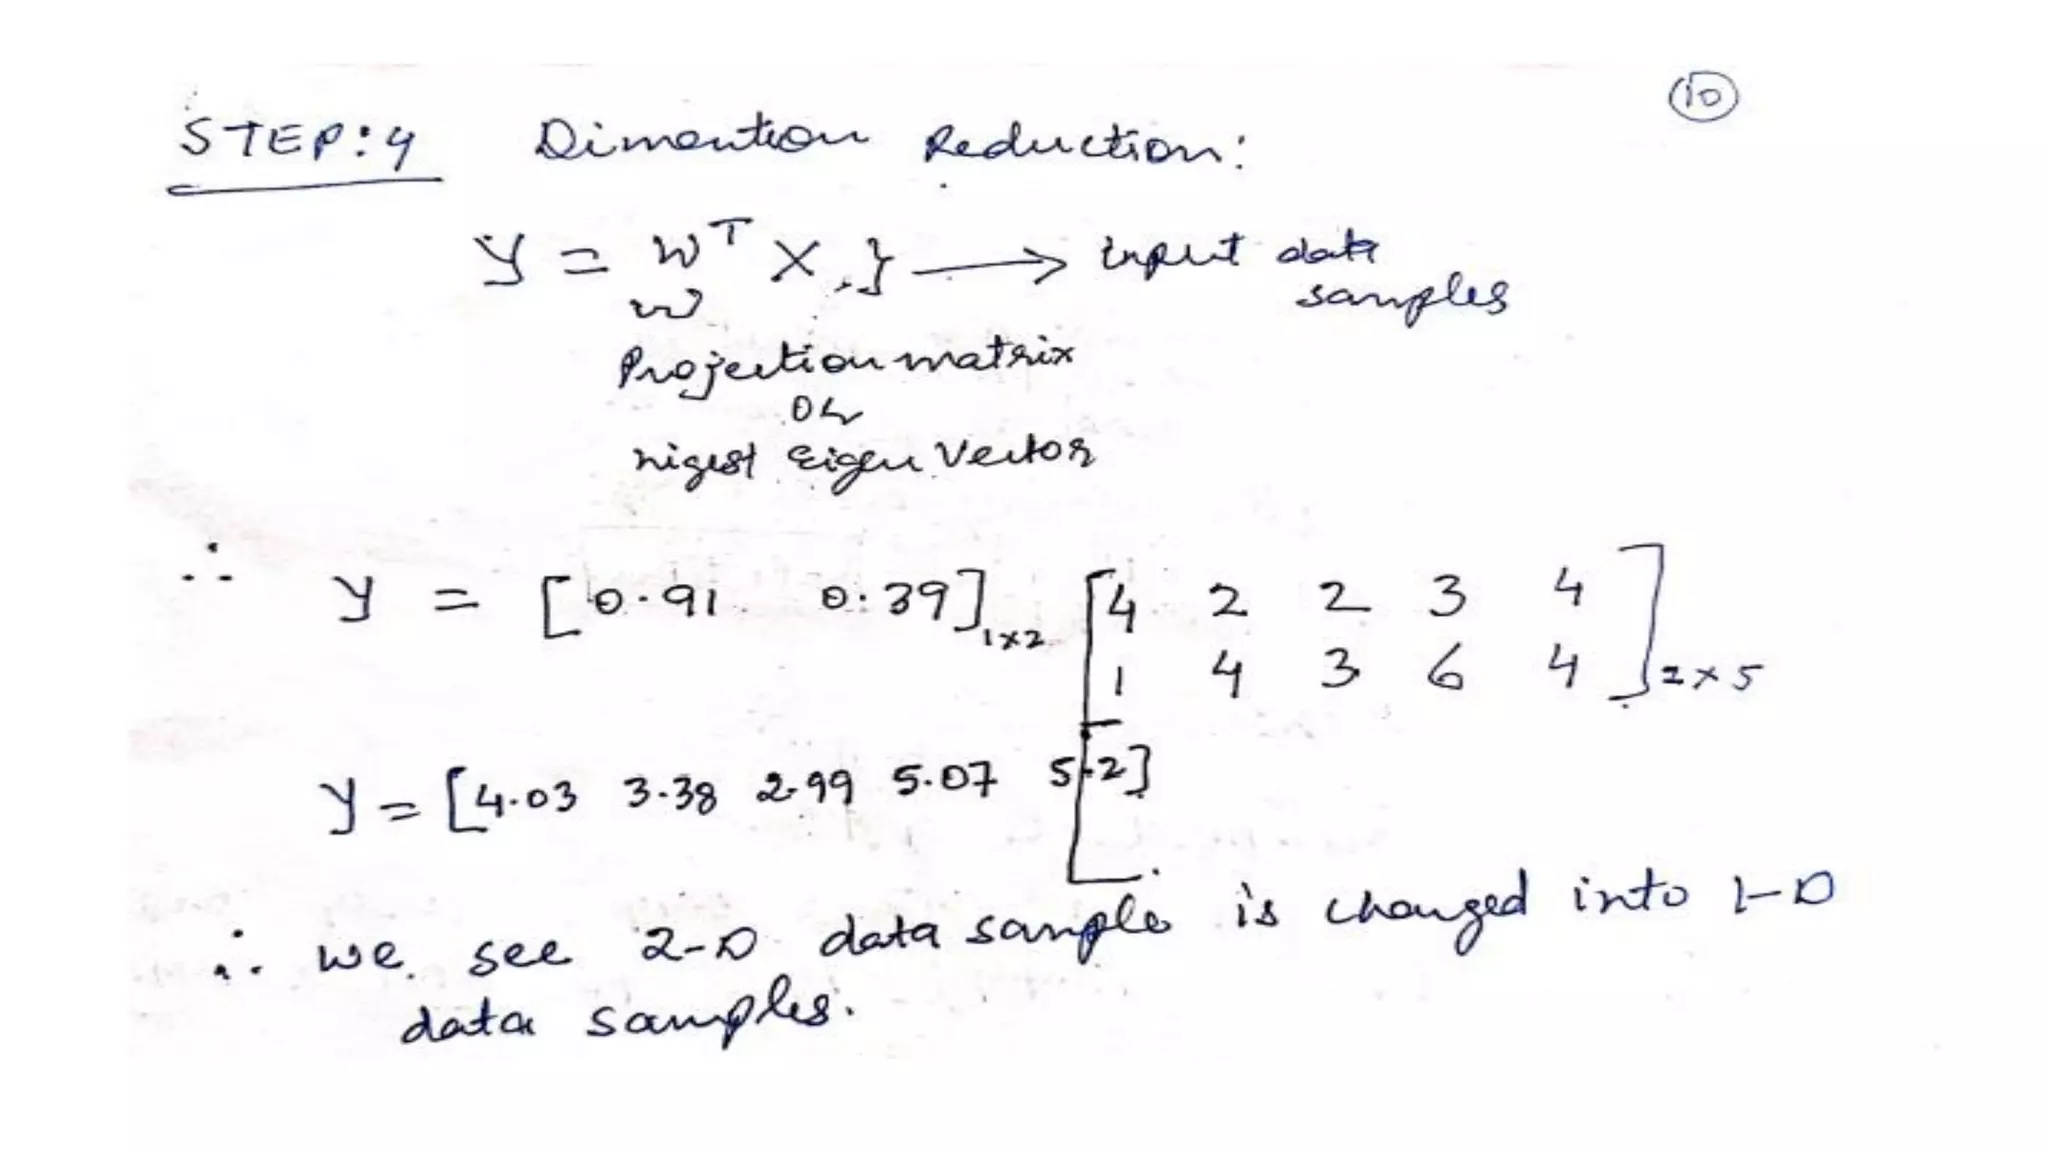 10
STEP:4 Dimention Reduction:
y = W^T X } → input data
samples
Projection matrix
or
higest Eigen Vector
∴ y = [0.91 0.39]1x2 [4 2 2 3 4
1 4 3 6 4]2x5
y = [4.03 3.38 2.99 5.07 5.2]
∴ we see 2-D data sample is changed into 1-D
data samples.